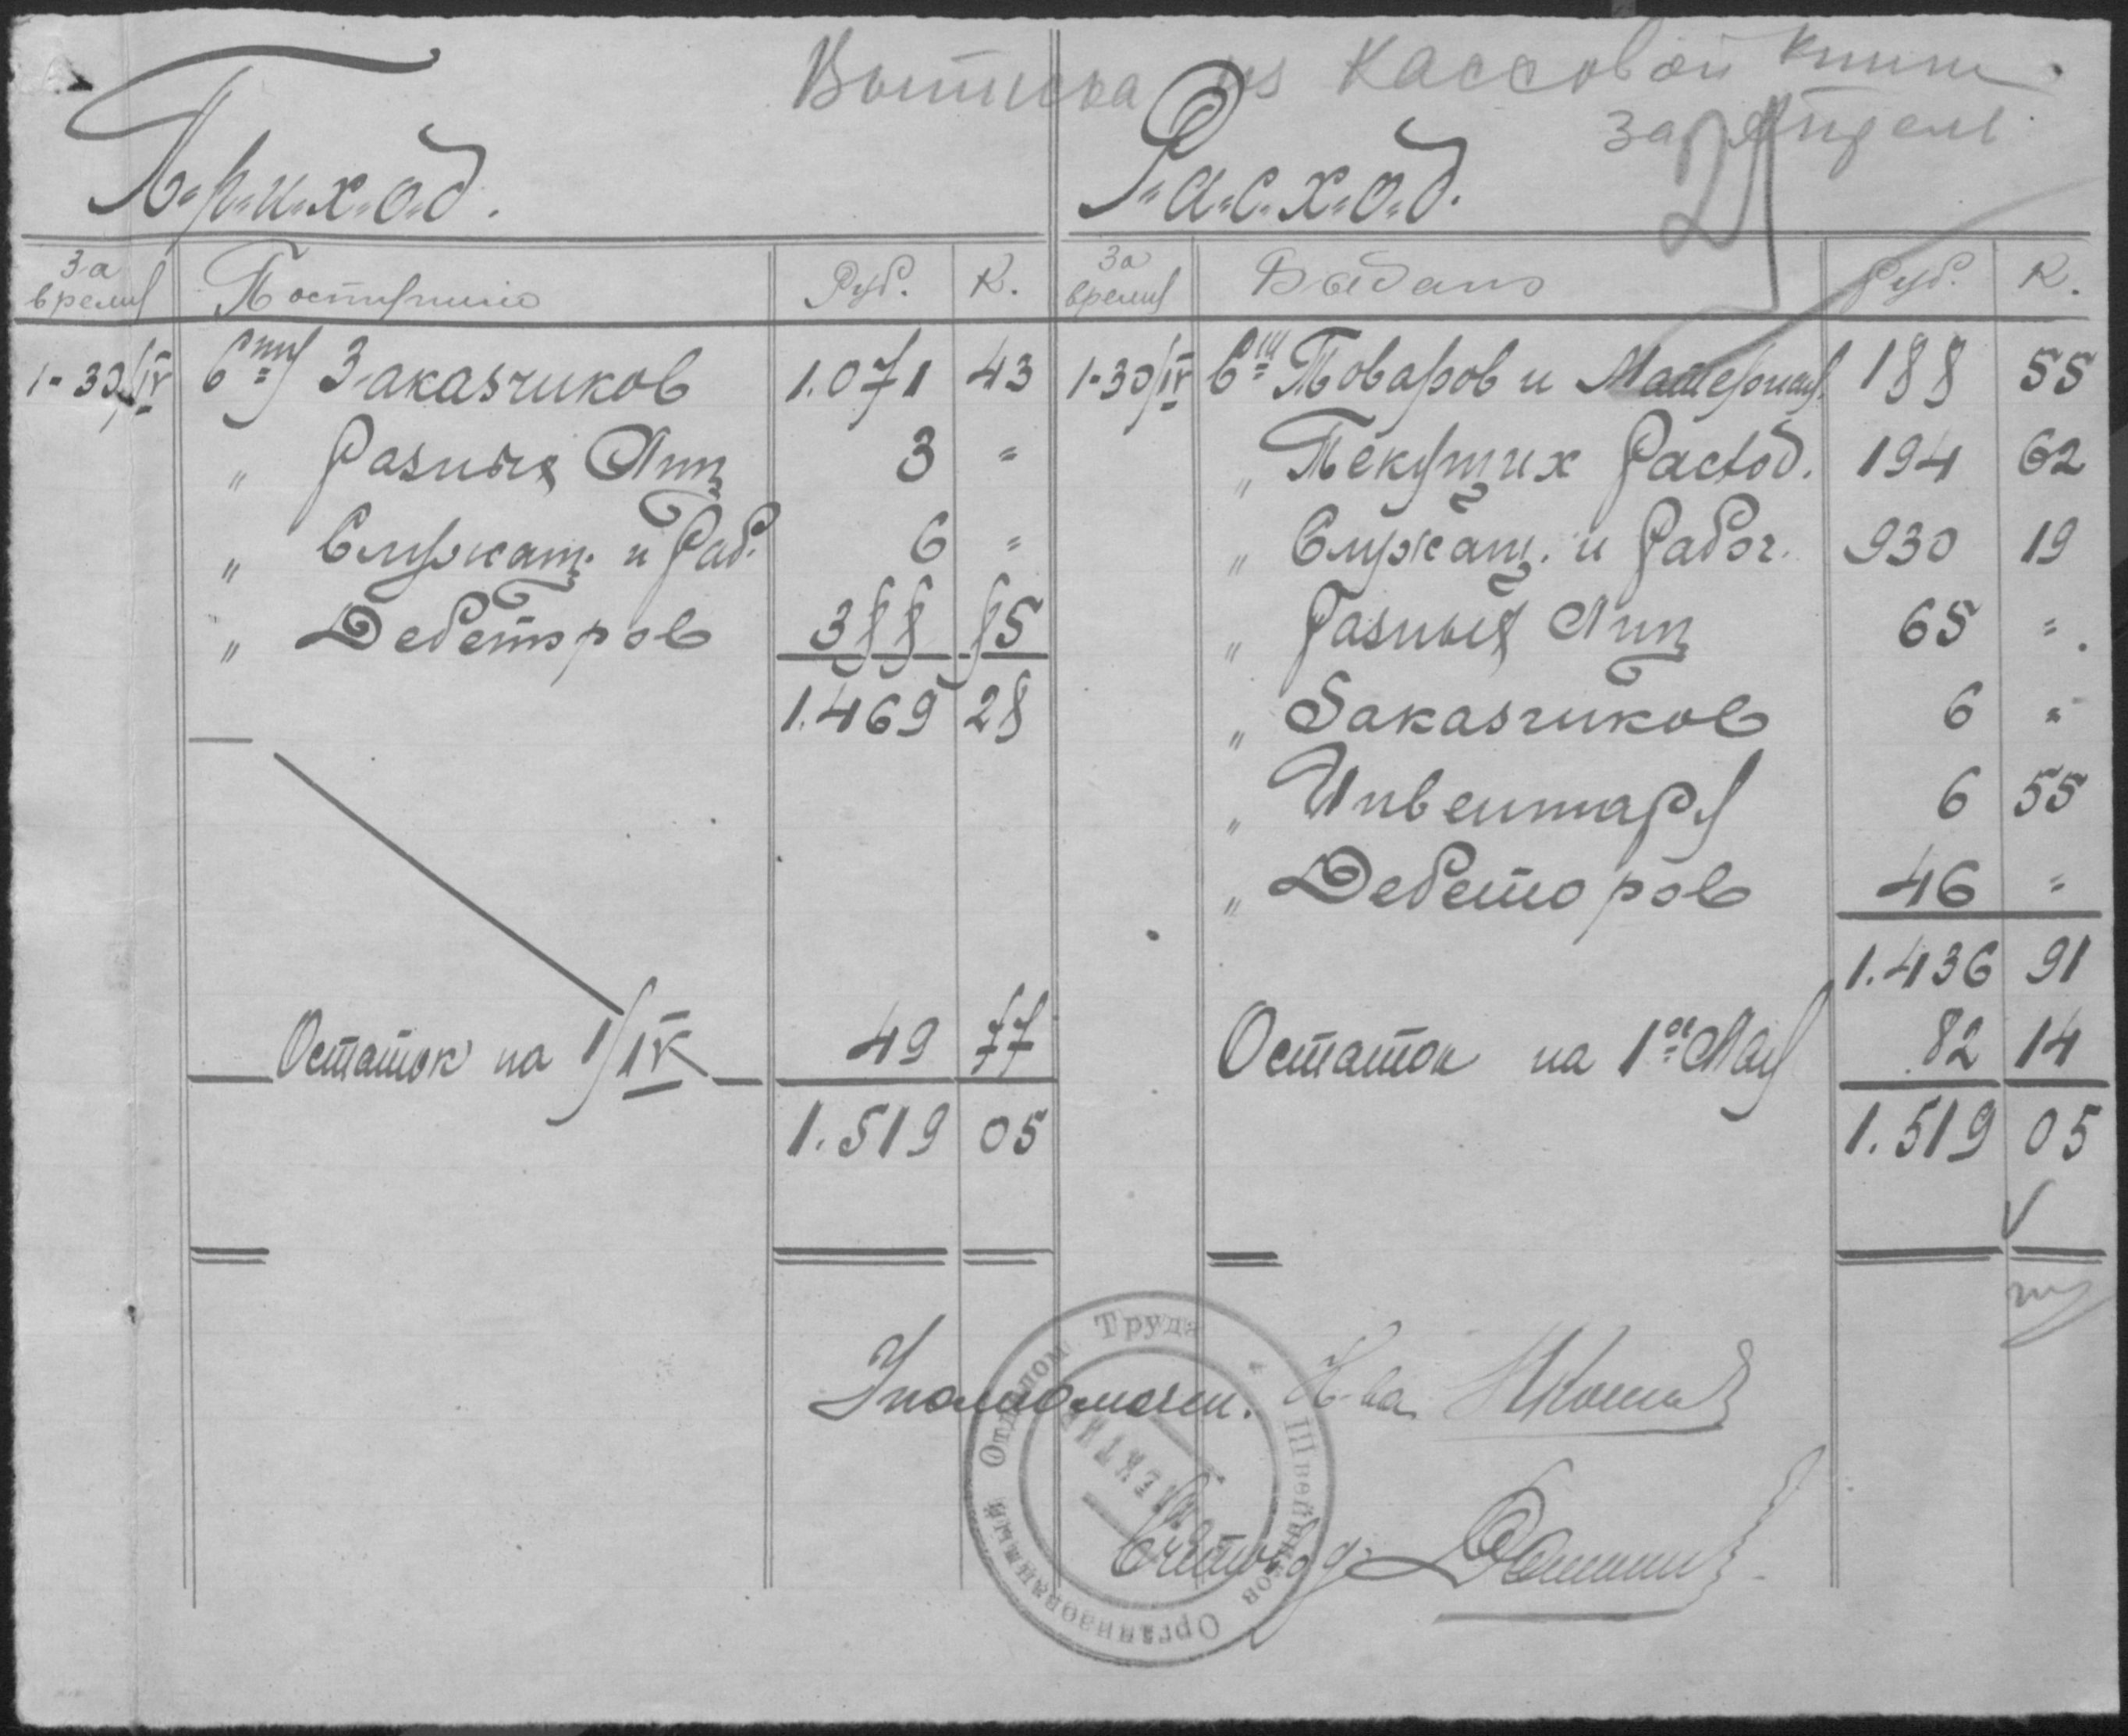 Выписка из Кассовой книги
за Апрель
П-р-и-х-о-д.
Р-а-с-х-о-д.
За время Поступило Руб. К. За время Выдано Руб. К.
1-30/IV Счту Заказчиков 1.071 43
" Разных Лиц 3 "
" Служащ. и Раб. 6 "
" Дебеторов 388 85
1.469 28
Остаток на 1/IV 49 77
1.519 05
1-30/IV Сч Товаров и Материал. 188 55
" Текущих Расход. 194 62
" Служащ. и Рабоч. 930 19
" Разных Лиц 65 "
" Заказчиков 6 "
" Инвентаря 6 55
" Дебеторов 46 "
1.436 91
Остаток на 1ое Мая 82 14
1.519 05
Уполномочен. К-ва
Счетовод
Организованный Отделом Труда
Швейников